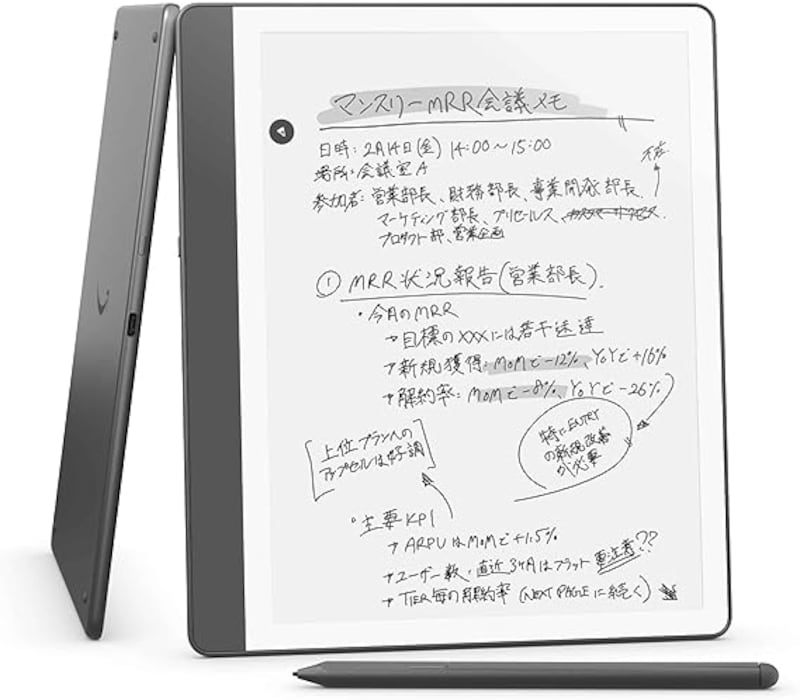 マンスリーMRR会議メモ
日時: 2月14日(金) 14:00〜15:00
場所: 会議室A
欠席
参加者: 営業部長、財務部長、事業開発部長、
マーケティング部長、プリセールス、カスタマーサクセス、
プロダクト部、営業企画
① MRR状況報告(営業部長).
・今月のMRR
→目標のXXXには若干未達
→新規獲得: MoMで-12%、YoYで+16%
→解約率: MoMで-8%、YoYで-26%
特にENTRY
の新規改善
が必要
上位プランへの
アップセルは好調
・主要KPI
→ARPUはMoMで+1.5%
→ユーザー数、直近3ヶ月はフラット 要注意??
→TIER毎の解約率 (NEXT PAGEに続く)